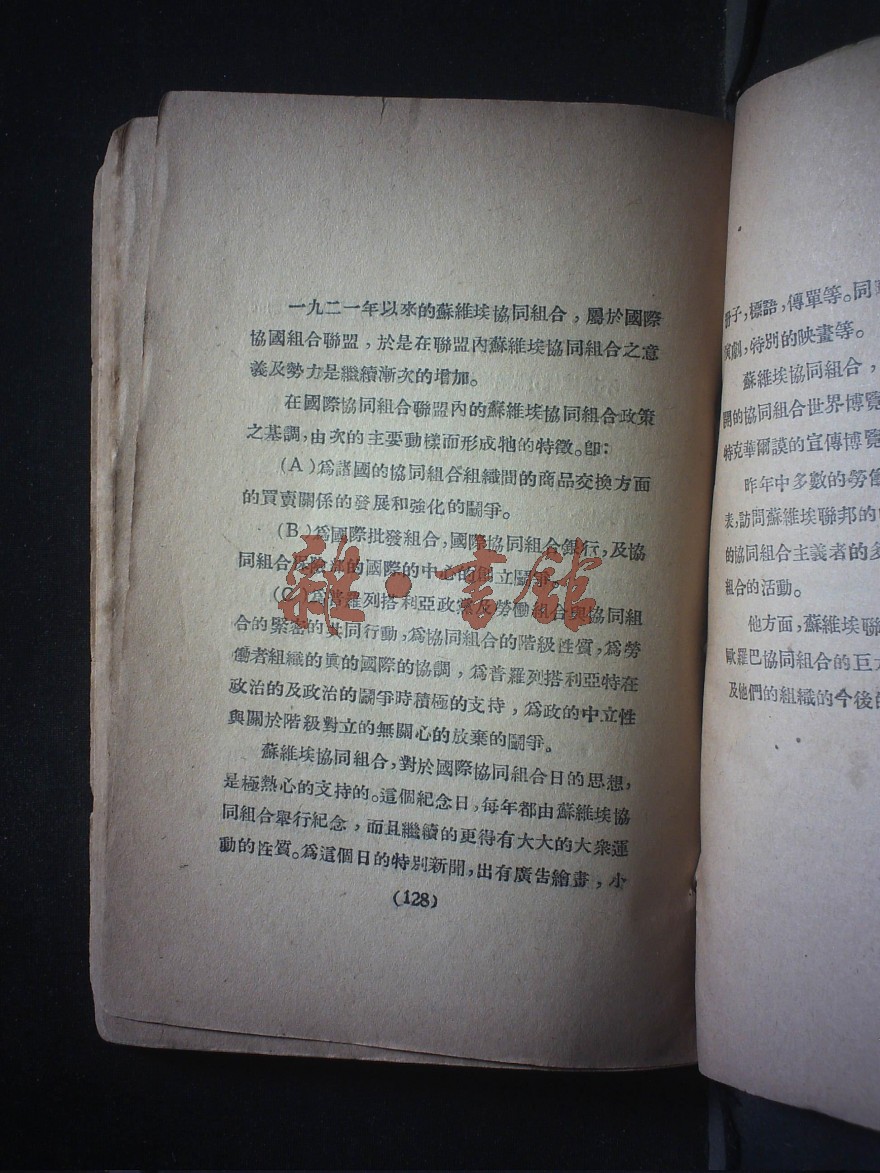 一九二一年以來的蘇維埃協同組合，屬於國際
協國組合聯盟，於是在聯盟內蘇維埃協同組合之意
義及勢力是繼續漸次的增加。
在國際協同組合聯盟內的蘇維埃協同組合政策
之基調，由次的主要動樣而形成牠的特徵。卽：
(A)爲諸國的協同組合組織間的商品交換方面
的買賣關係的發展和強化的鬬爭。
(B)爲國際批發組合，國際協同組合銀行，及協
同組合保險部的國際的中心的創立鬬爭。
(C)爲普羅列搭利亞政黨及勞働組合與協同組
合的緊密的共同行動，爲協同組合的階級性質，爲勞
働者組織的眞的國際的協調，爲普羅列搭利亞特在
政治的及政治的鬬爭時積極的支持，爲政的中立性
與關於階級對立的無關心的放棄的鬬爭。
蘇維埃協同組合，對於國際協同組合日的思想，
是極熱心的支持的。這個紀念日，每年都由蘇維埃協
同組合舉行紀念，而且繼續的更得有大大的大衆運
動的性質。爲這個日的特別新聞，出有廣告繪畫，小
(128)
雜·書館
册子，標語，傳單等。同
演劇，特別的映畫等。
蘇維埃協同組合，
開的協同組合世界博覽
特克華爾謨的宣傳博覽
昨年中多數的勞働
表，訪問蘇維埃聯邦的
的協同組合主義者的多
組合的活動。
他方面，蘇維埃聯
歐羅巴協同組合的巨大
及他們的組織的今後的